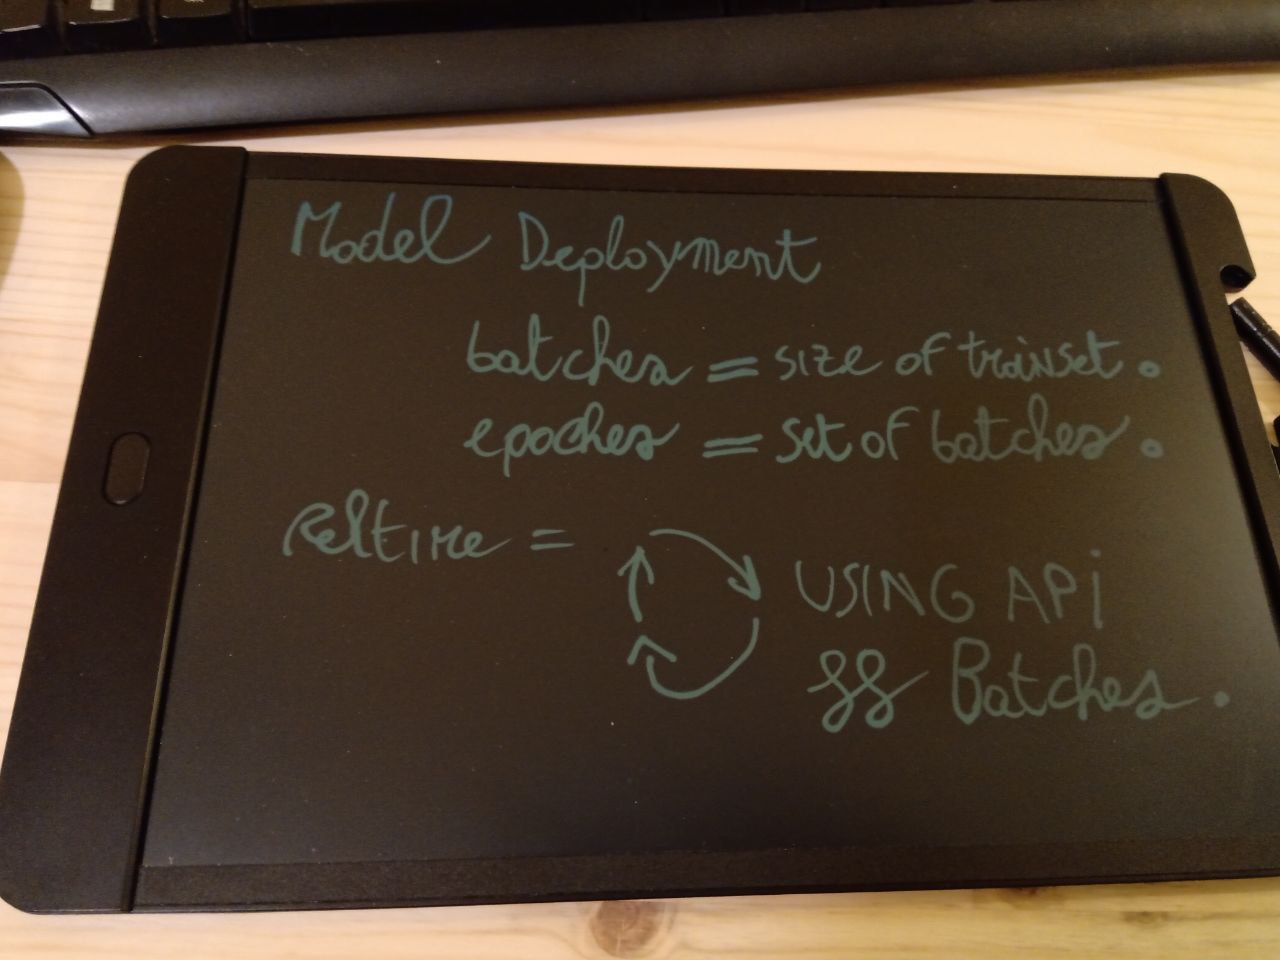 Model Deployment
batches = size of trainset.
epoches = set of batches.
Reltime =
USING API
Batches.